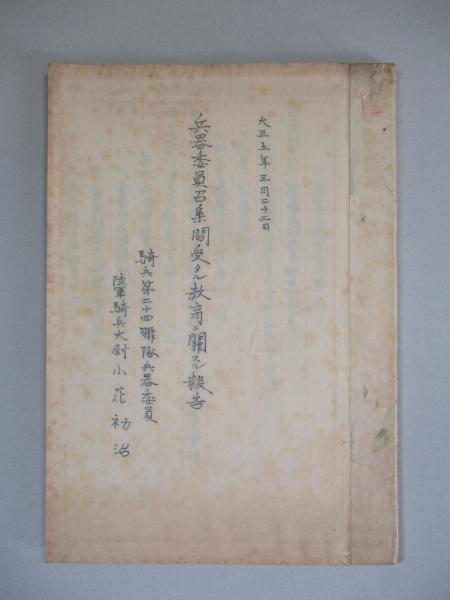 大正五年三月二十二日
兵器委員召集間受ケタル教育ニ關スル報告
騎兵第二十四聯隊兵器委員
陸軍騎兵大尉小花初治